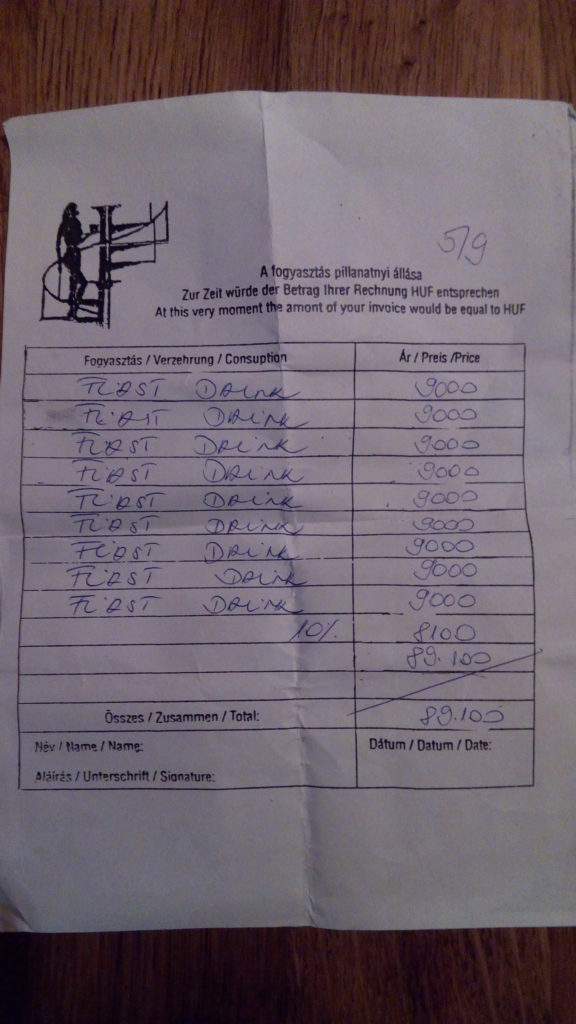 5/9
A fogyasztás pillanatnyi állása
Zur Zeit würde der Betrag Ihrer Rechnung HUF entsprechen
At this very moment the amont of your invoice would be equal to HUF
Fogyasztás / Verzehrung / Consuption Ár / Preis /Price
FIRST DRINK 9000
FIRST DRINK 9000
FIRST DRINK 9000
FIRST DRINK 9000
FIRST DRINK 9000
FIRST DRINK 9000
FIRST DRINK 9000
FIRST DRINK 9000
FIRST DRINK 9000
10% 8100
89.100
Összes / Zusammen / Total: 89.100
Név / Name / Name: Dátum / Datum / Date:
Aláírás / Unterschrift / Signature: